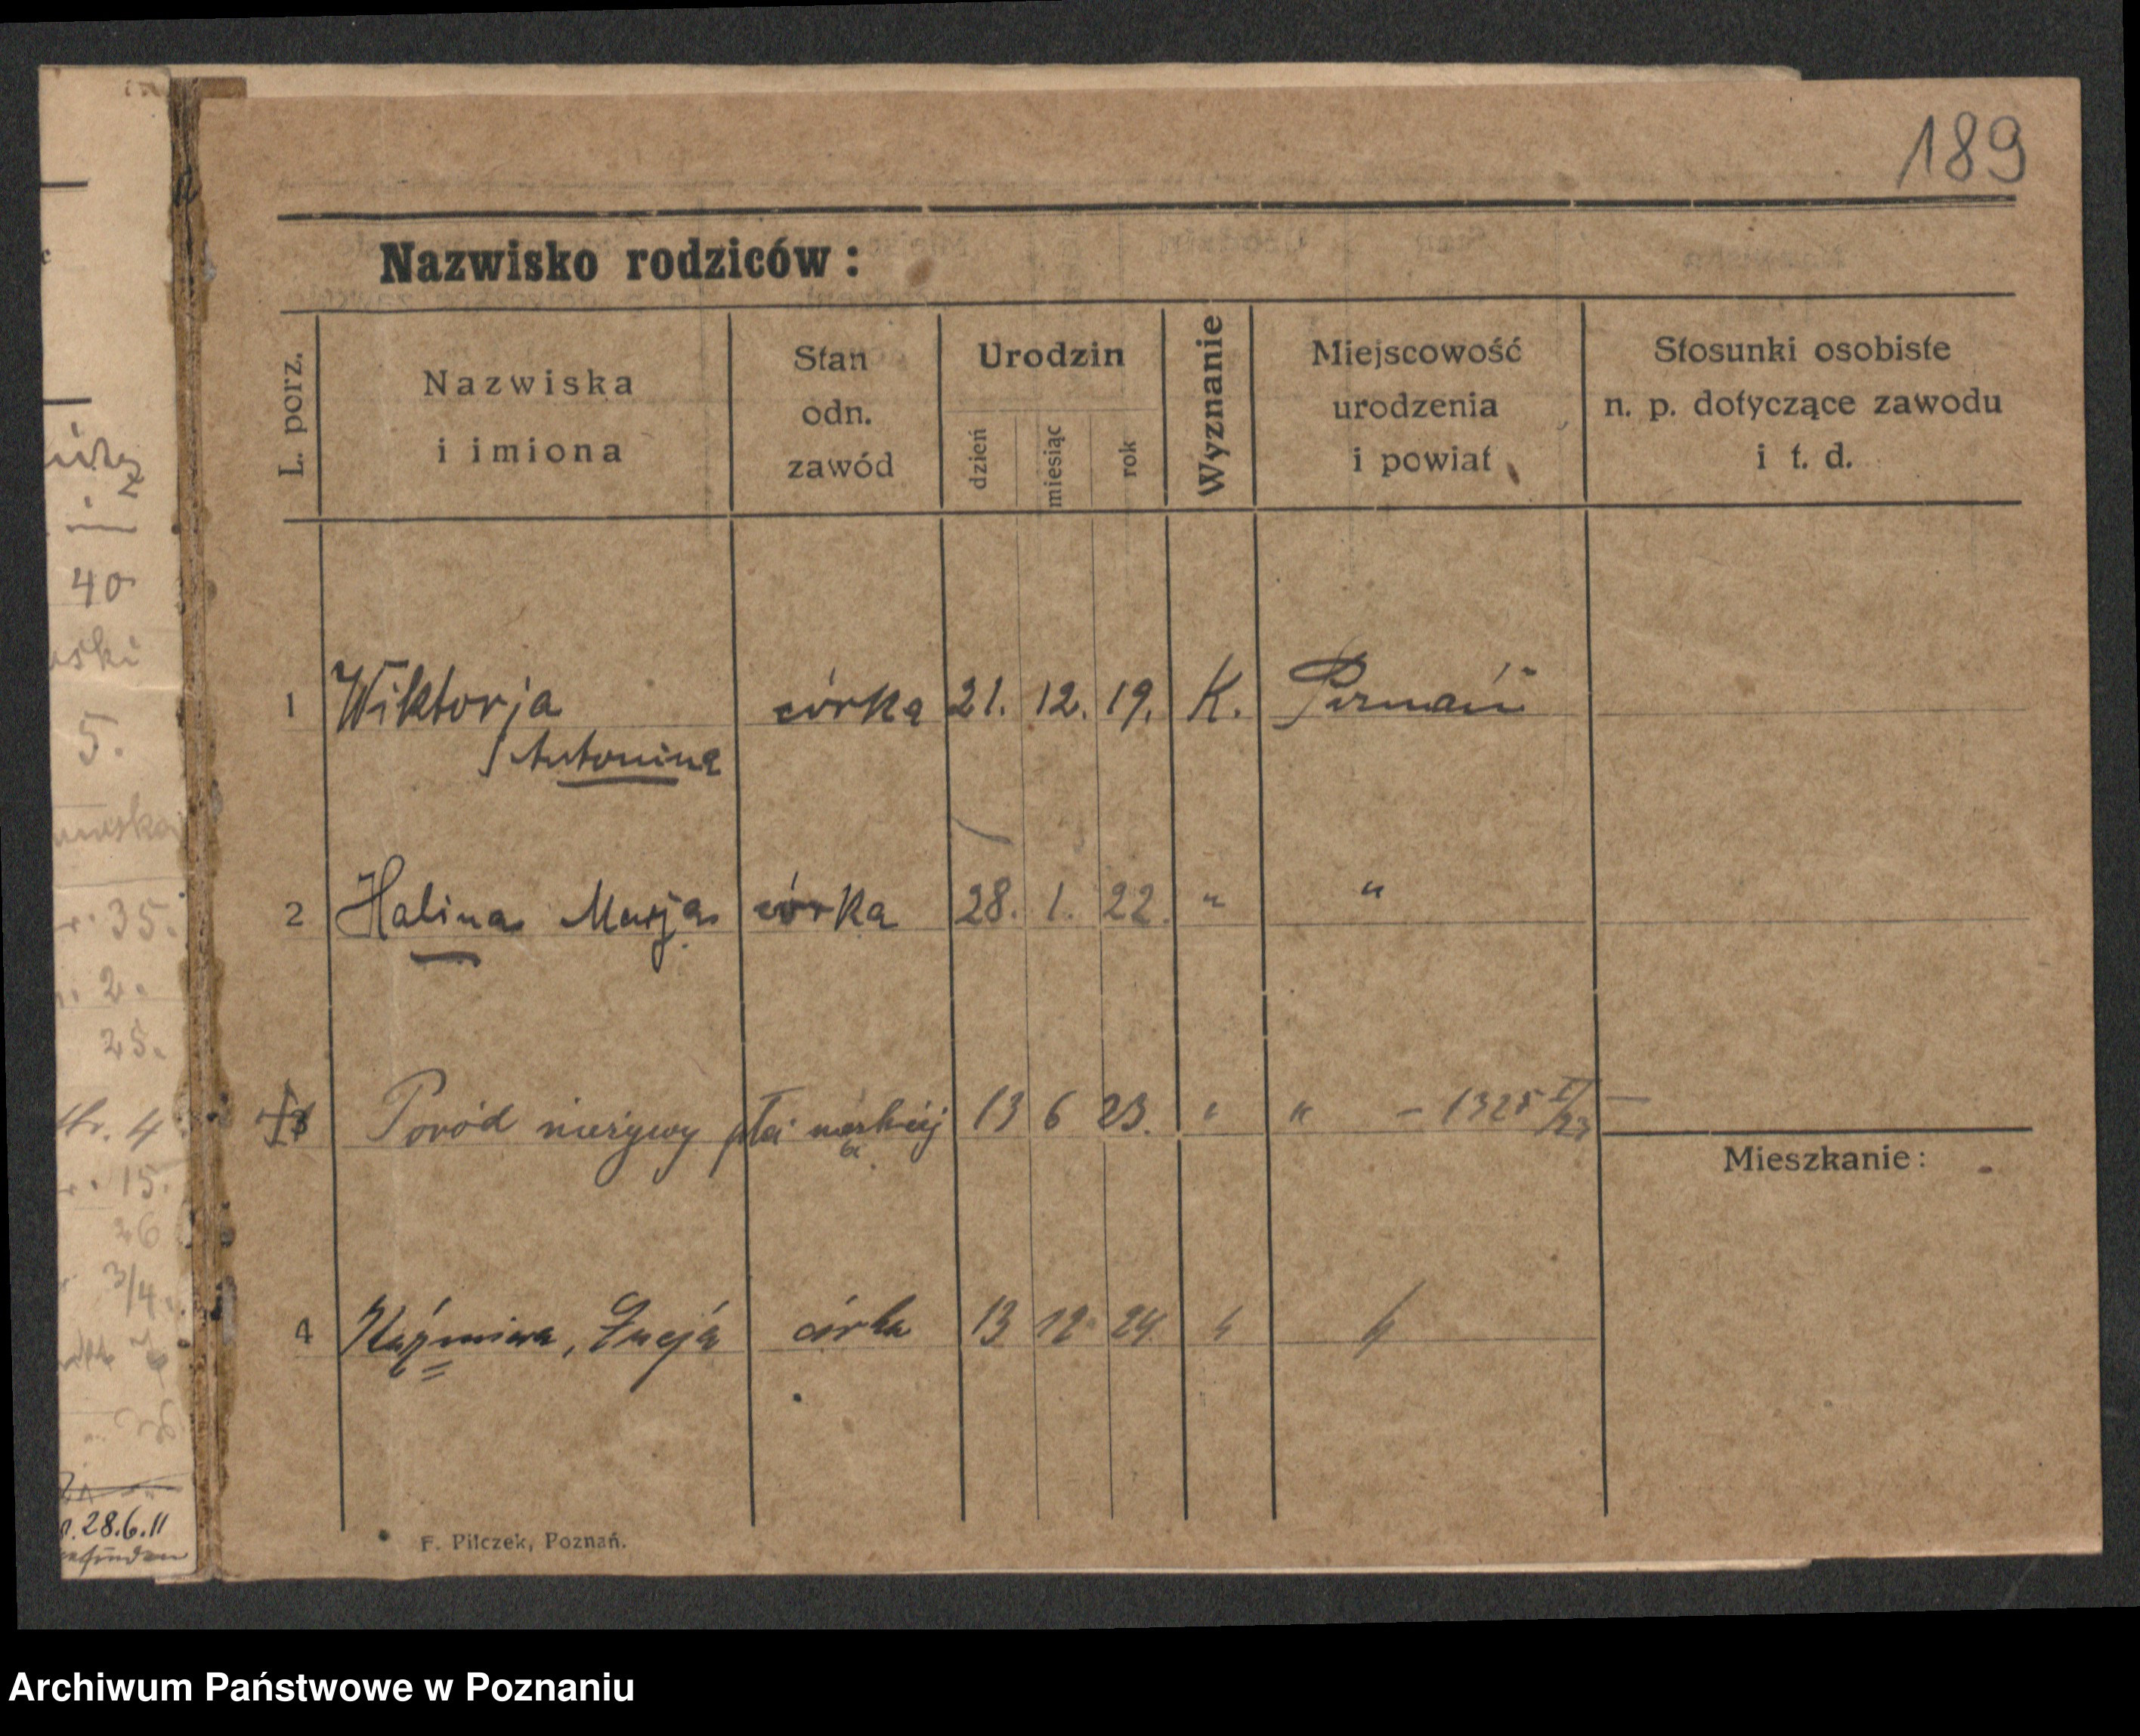 189
Nazwisko rodziców:
L. porz.
Nazwiska
i imiona
Stan
odn.
zawód
Urodzin
dzień
miesiąc
rok
Wyznanie
Miejscowość
urodzenia
i powiat
Stosunki osobiste
n. p. dotyczące zawodu
i t. d.
1 Wiktorja córka 21. 12. 19. K. Poznań
Antonina
2 Halina Marja córka 28. 1. 22. " "
3 Poród nieżywy płci męskiej 13 6 23. " " – 1325 –
Mieszkanie:
4 Kaźmiera, Łucja córka 13 12 24 " "
F. Pilczek, Poznań.
40
ski
5.
35.
2.
25.
4
15.
26
3/4
28.6.11
Archiwum Państwowe w Poznaniu